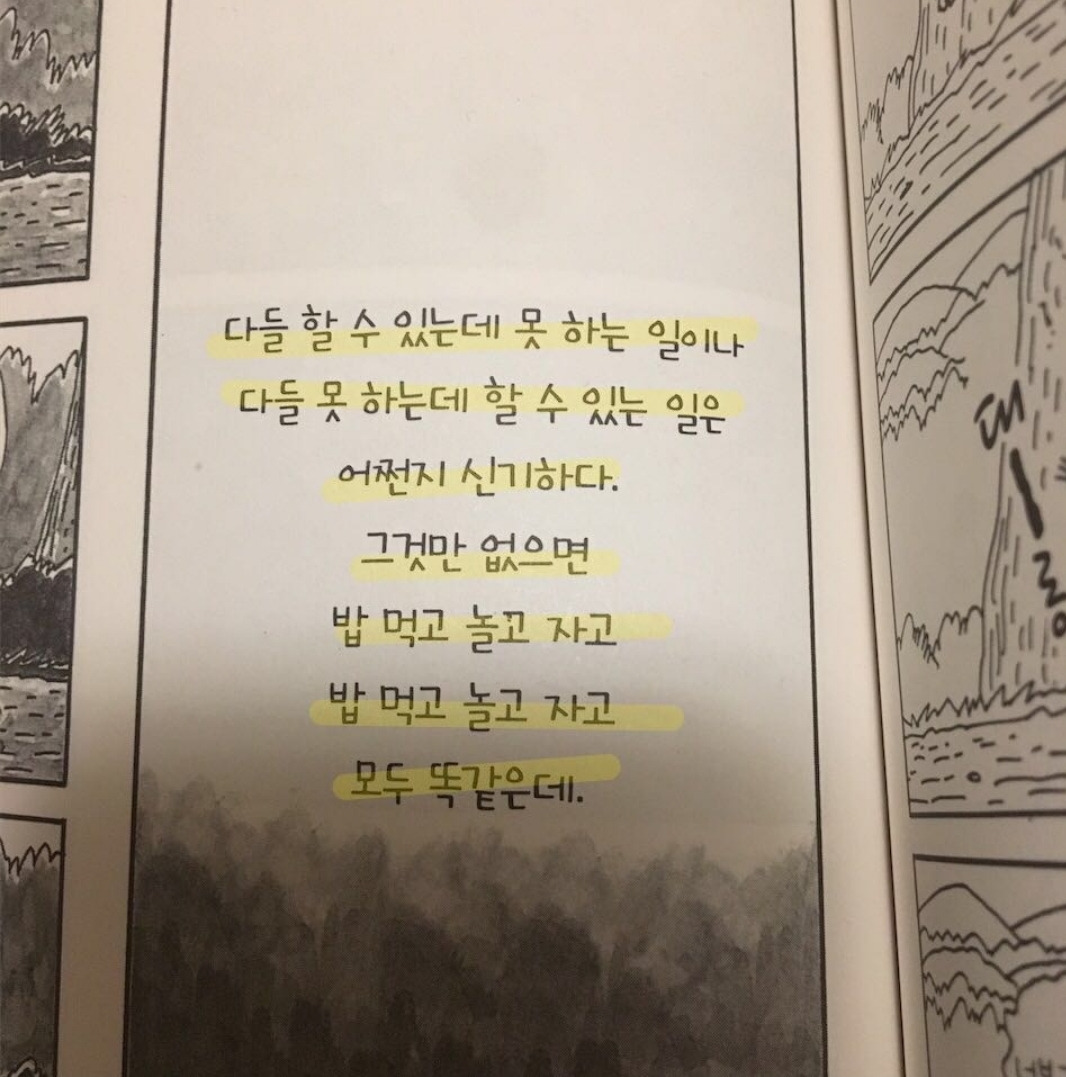 다들 할 수 있는데 못 하는 일이나
다들 못 하는데 할 수 있는 일은
어쩐지 신기하다.
그것만 없으면
밥 먹고 놀고 자고
밥 먹고 놀고 자고
모두 똑같은데.